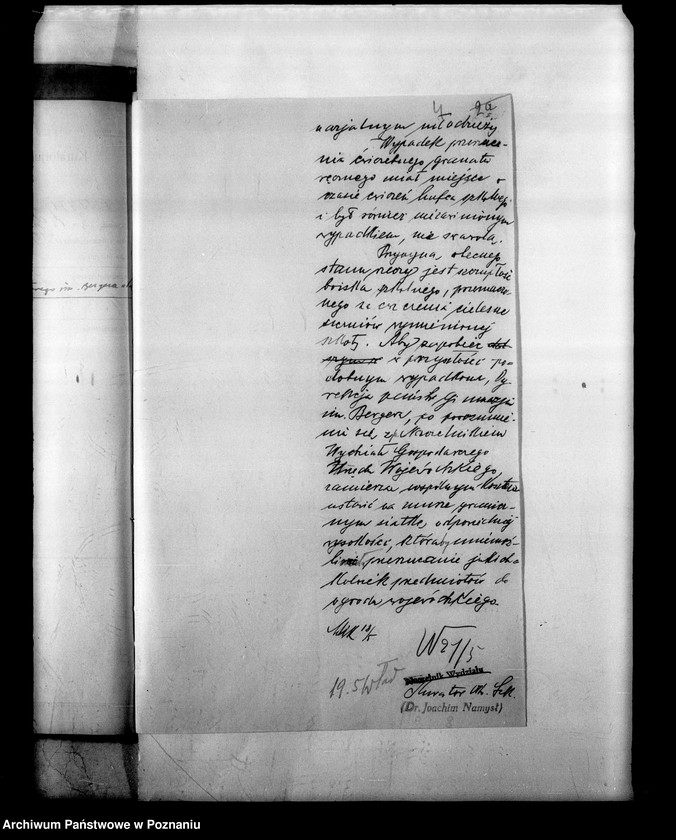 4 26
nacjalnym młodzieży
Wypadek przerzuce-
nia ćwiczebnego granatu
ręcznego miał miejsce w
czasie ćwiczeń hufca szkolnego
i był również niezawinionym
wypadkiem, nie swawolą.
Przyczyną obecnego
stanu rzeczy jest szczupłość
boiska szkolnego, przeznaczo-
nego na ćwiczenia cielesne
uczniów wymienionej
szkoły. Aby zapobiec
w przyszłości po-
dobnym wypadkom, Dy-
rekcja państw. Gimnazjum
im. Bergera, po porozumie-
niu się z p. Naczelnikiem
Wydziału Gospodarczego
Urzędu Wojewódzkiego,
zamierza wspólnym kosztem
ustawić na murze granicz-
nym siatkę odpowiedniej
wysokości, któraby uniemoż-
liwiła przerzucanie jakich-
kolwiek przedmiotów do
ogrodu wojewódzkiego.
W 21/5
19.5
Naczelnik Wydziału
Kurator Okr. Szk.
(Dr. Joachim Namysł)
Archiwum Państwowe w Poznaniu